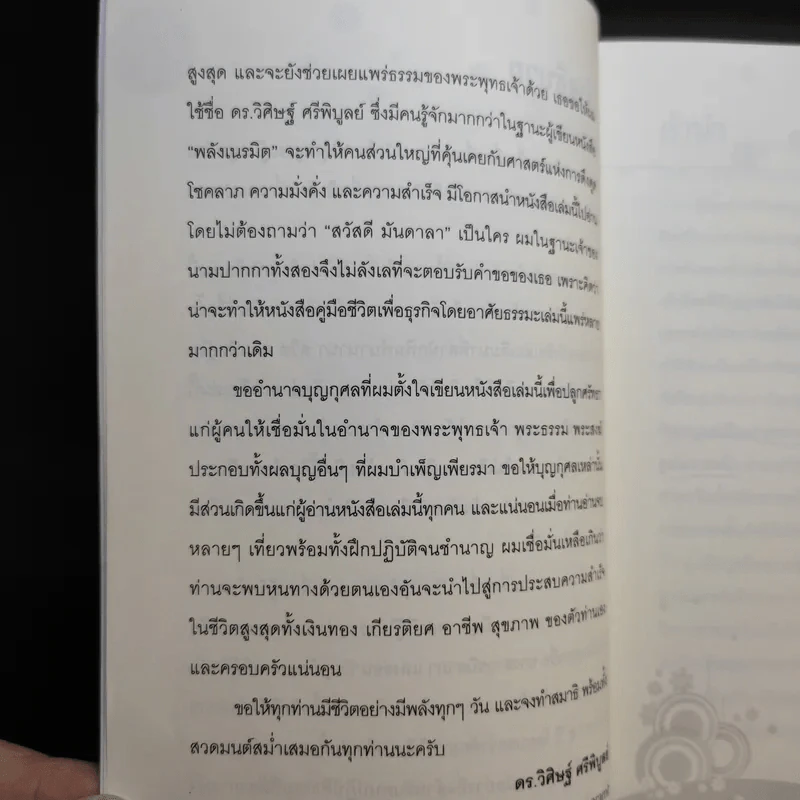 สูงสุด และจะยังช่วยเผยแพร่ธรรมของพระพุทธเจ้าด้วย เธอขอให้ผม
ใช้ชื่อ ดร.วิศิษฐ์ ศรีพิบูลย์ ซึ่งมีคนรู้จักมากกว่าในฐานะผู้เขียนหนังสือ
“พลังเนรมิต” จะทำให้คนส่วนใหญ่ที่คุ้นเคยกับศาสตร์แห่งการดึงดูด
โชคลาภ ความมั่งคั่ง และความสำเร็จ มีโอกาสนำหนังสือเล่มนี้ไปอ่าน
โดยไม่ต้องถามว่า “สวัสดี มันดาลา” เป็นใคร ผมในฐานะเจ้าของ
นามปากกาทั้งสองจึงไม่ลังเลที่จะตอบรับคำขอของเธอ เพราะคิดว่า
น่าจะทำให้หนังสือคู่มือชีวิตเพื่อธุรกิจโดยอาศัยธรรมะเล่มนี้แพร่หลาย
มากกว่าเดิม
ขออำนาจบุญกุศลที่ผมตั้งใจเขียนหนังสือเล่มนี้เพื่อปลุกศรัทธา
แก่ผู้คนให้เชื่อมั่นในอำนาจของพระพุทธเจ้า พระธรรม พระสงฆ์
ประกอบทั้งผลบุญอื่นๆ ที่ผมบำเพ็ญเพียรมา ขอให้บุญกุศลเหล่านั้น
มีส่วนเกิดขึ้นแก่ผู้อ่านหนังสือเล่มนี้ทุกคน และแน่นอนเมื่อท่านอ่านจบ
หลายๆ เที่ยวพร้อมทั้งฝึกปฏิบัติจนชำนาญ ผมเชื่อมั่นเหลือเกินว่า
ท่านจะพบหนทางด้วยตนเองอันจะนำไปสู่การประสบความสำเร็จ
ในชีวิตสูงสุดทั้งเงินทอง เกียรติยศ อาชีพ สุขภาพ ของตัวท่านเอง
และครอบครัวแน่นอน
ขอให้ทุกท่านมีชีวิตอย่างมีพลังทุกๆ วัน และจงทำสมาธิ พร้อมทั้ง
สวดมนต์สม่ำเสมอกันทุกท่านนะครับ
ดร.วิศิษฐ์ ศรีพิบูลย์